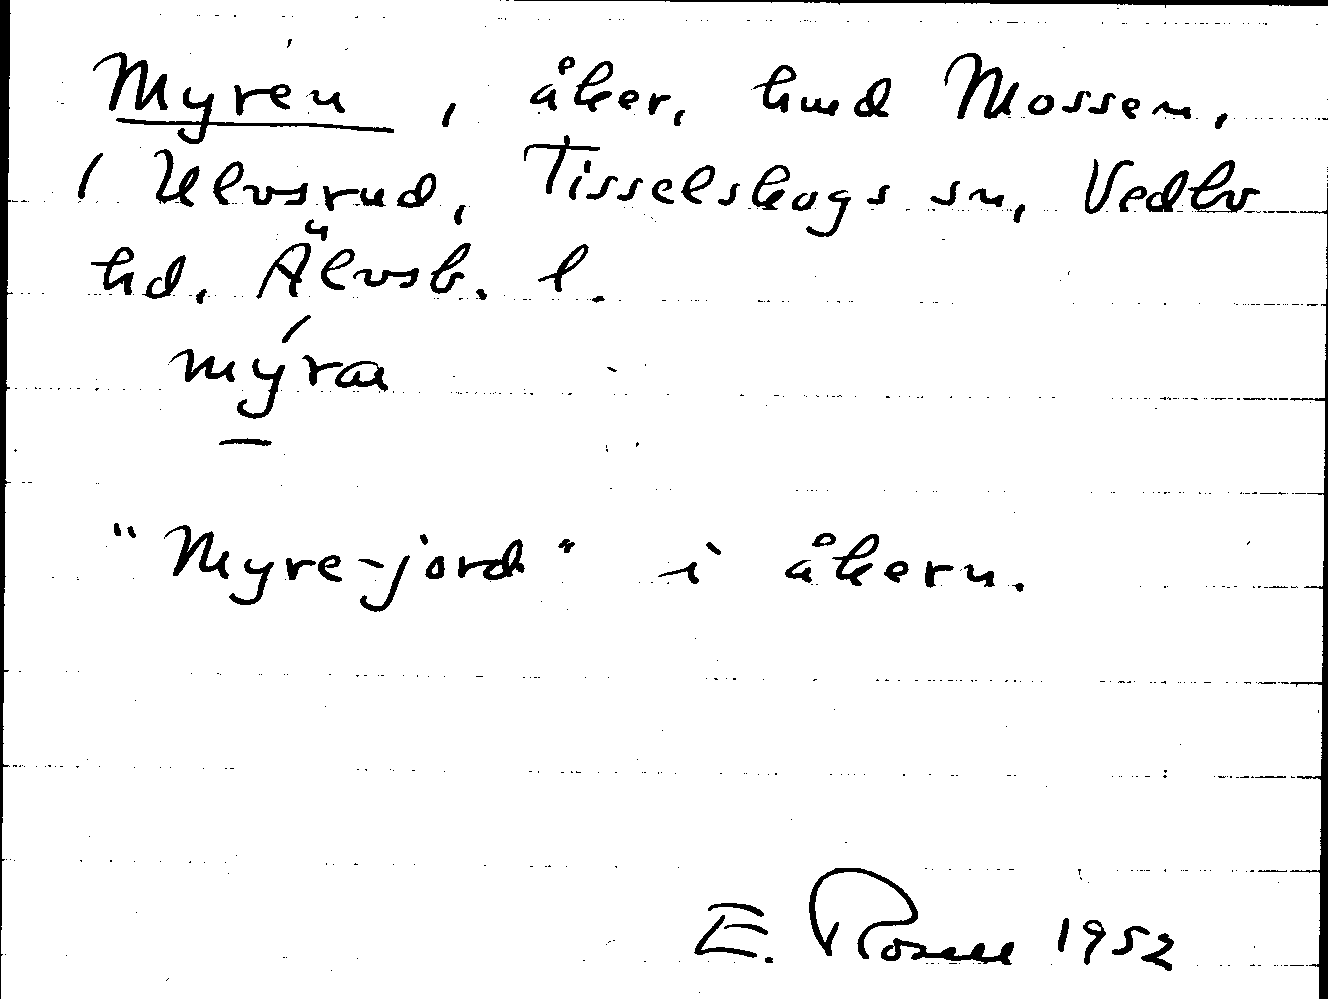 Myren, åker, hmd Mossen,
1 Ulvsrud, Tisselskogs sn, Vedbo
hd. Älvsb. l.
mýra
"Myre-jord" i åkern.
E. Rosell 1952